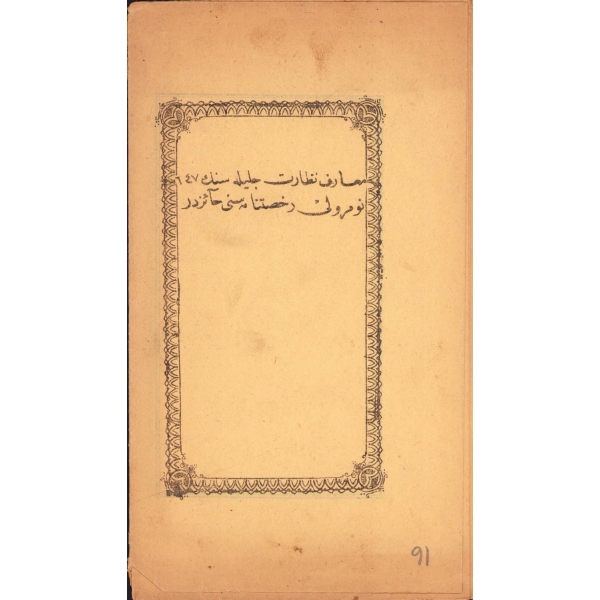 معارف نظارت جلیله سنك ٦٤٧
نومرولی رخصتنامه سنی حائزدر
91